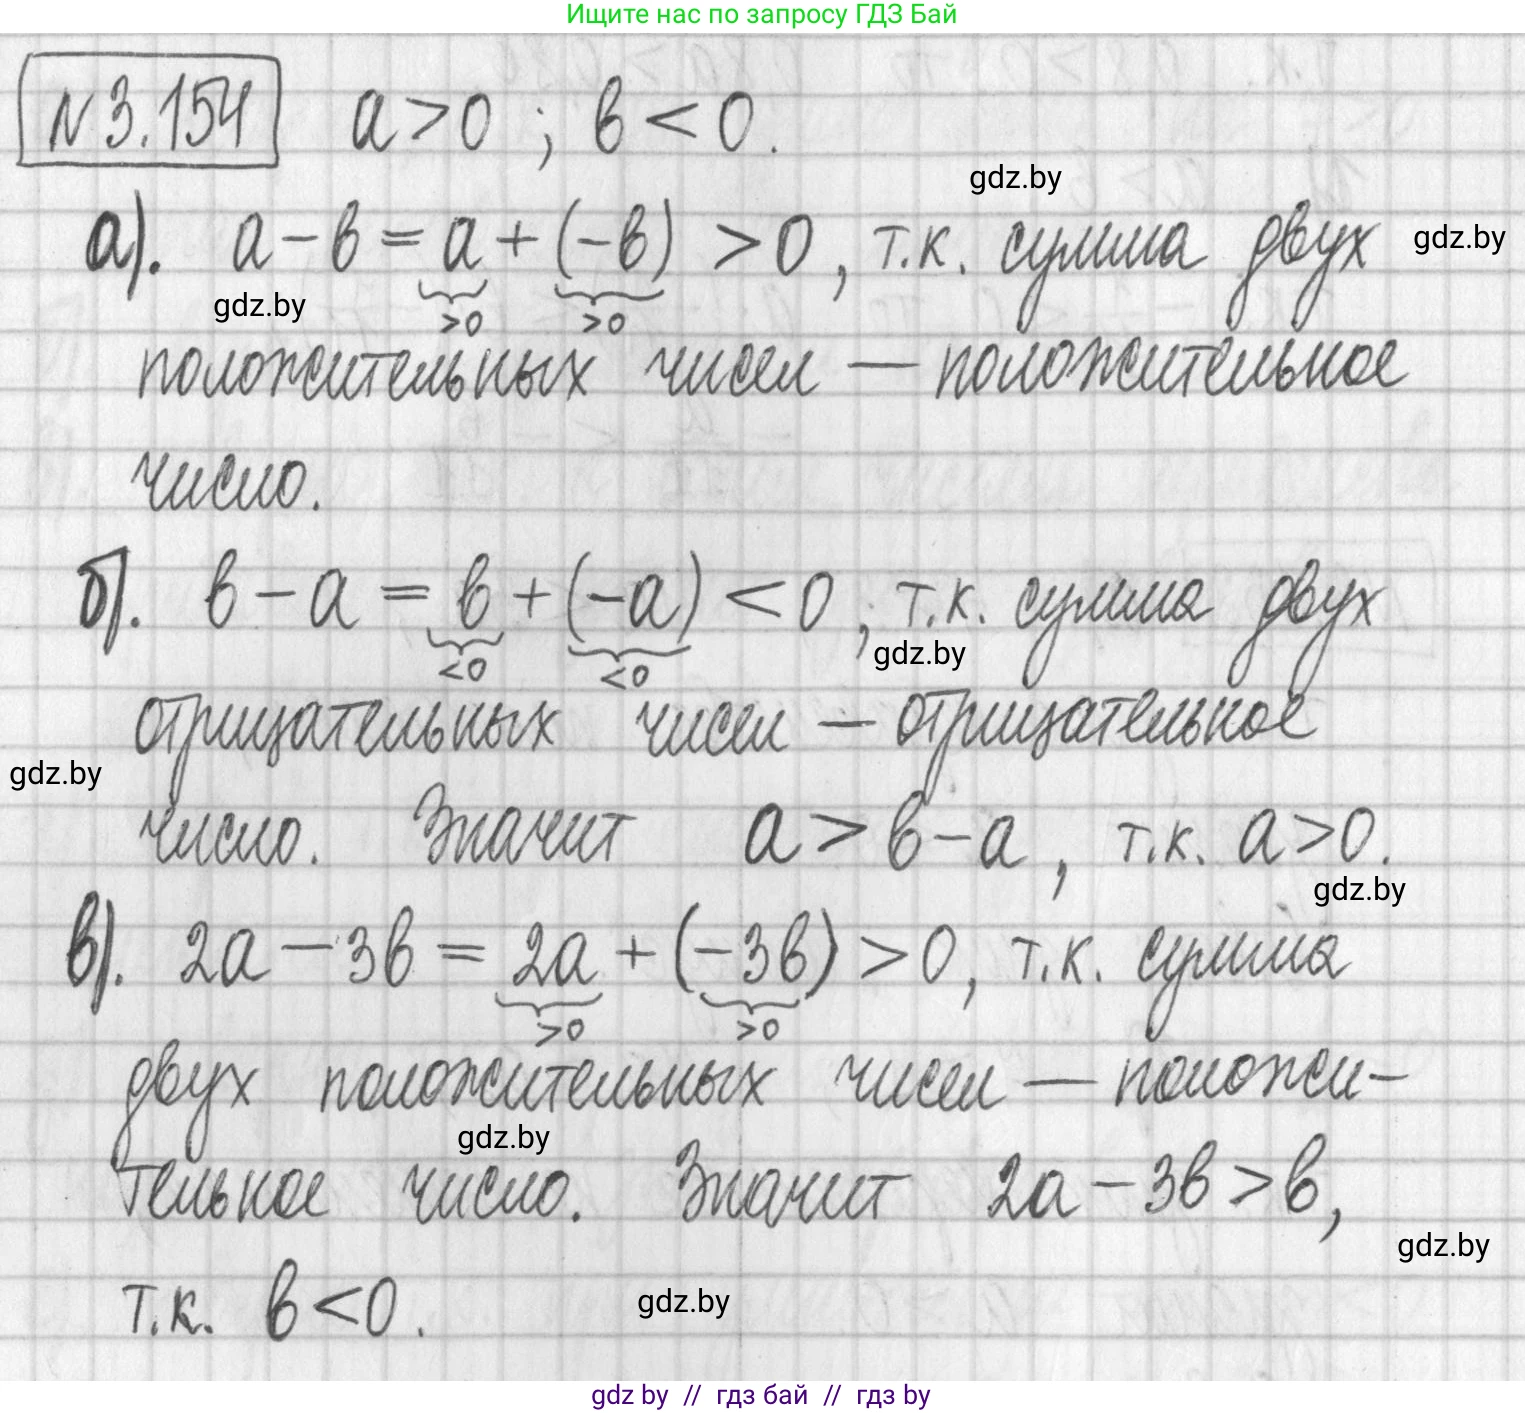 Ищите нас по запросу ГДЗ Бай
N 3.154 a > 0 ; в < 0.
gdz.by
а). a - в = a + (-в) > 0, т.к. сумма двух
gdz.by
gdz.by
>0 >0
положительных чисел — положительное
число.
б). в - a = в + (-a) < 0, т.к. сумма двух
gdz.by
<0 <0
отрицательных чисел — отрицательное
gdz.by
число. Значит a > в - a, т.к. a > 0.
gdz.by
в). 2a - 3в = 2a + (-3в) > 0, т.к. сумма
>0 >0
двух положительных чисел — положи-
gdz.by
тельное число. Значит 2a - 3в > в,
gdz.by
т.к. в < 0.
gdz.by
gdz by // гдз бай // гдз by